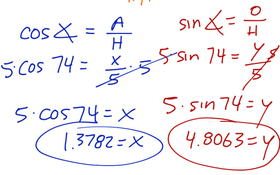 cos∡ = A/H
5·cos 74 = x/5 · 5
5·cos 74 = x
1.3782 = x
sin∡ = O/H
5·sin 74 = y/5 · 5
5·sin 74 = y
4.8063 = y